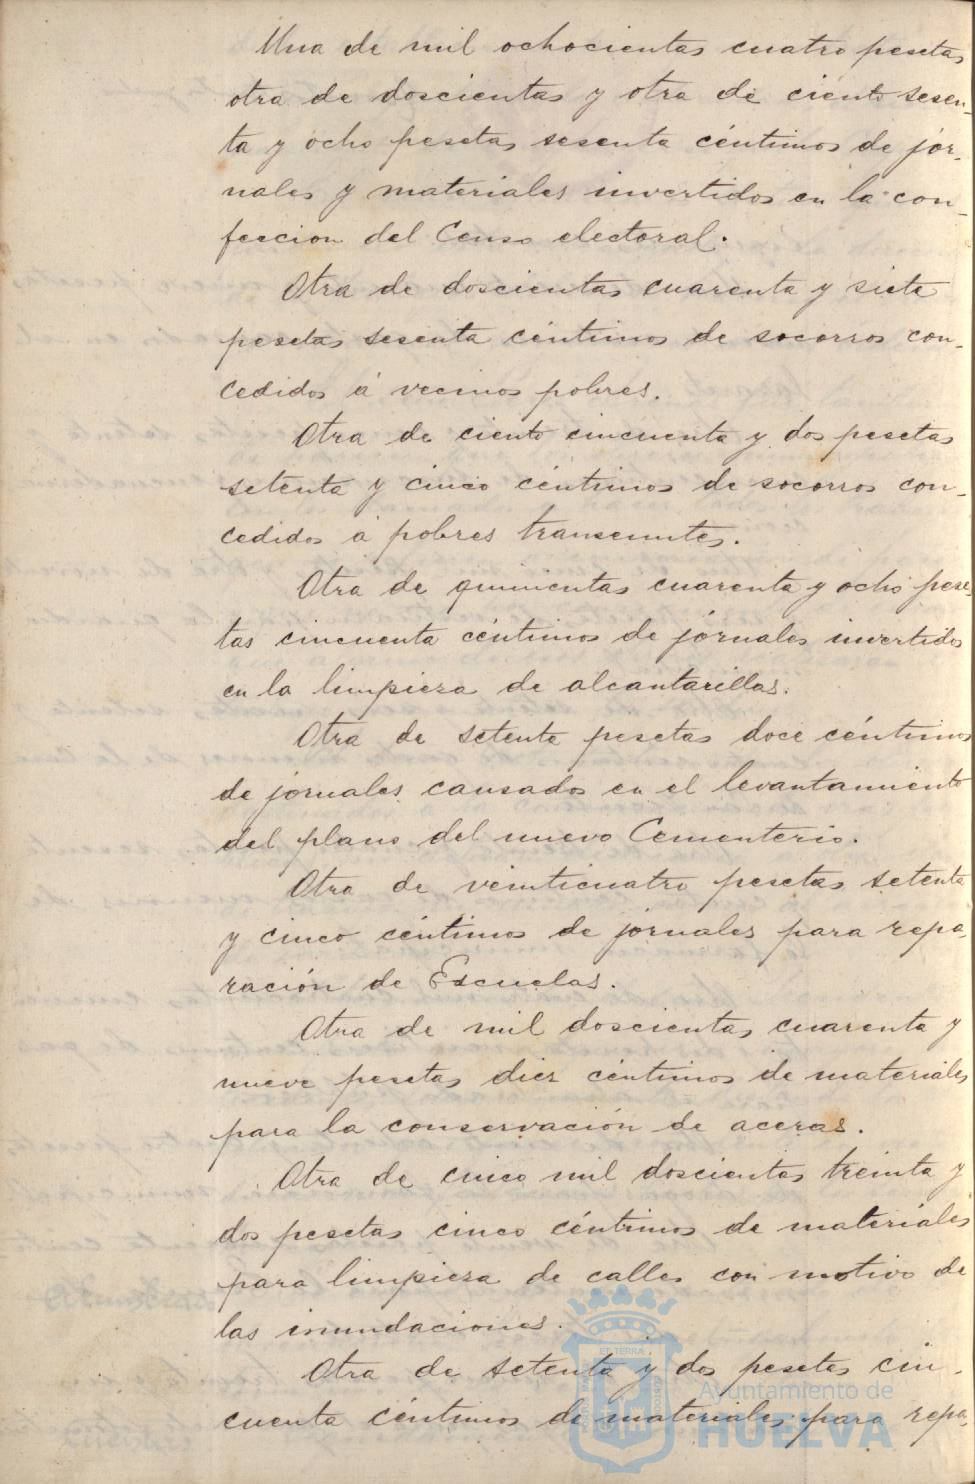 Una de mil ochocientas cuatro pesetas
otra de doscientas y otra de ciento sesen-
ta y ocho pesetas sesenta céntimos de jor-
nales y materiales invertidos en la con-
feccion del Censo electoral.
Otra de doscientas cuarenta y siete
pesetas sesenta céntimos de socorros con-
cedidos á vecinos pobres.
Otra de ciento cincuenta y dos pesetas
setenta y cinco céntimos de socorros con-
cedidos á pobres transeuntes.
Otra de quinientas cuarenta y ocho pese-
tas cincuenta céntimos de jornales invertidos
en la limpieza de alcantarillas.
Otra de setenta pesetas doce céntimos
de jornales causados en el levantamiento
del plano del nuevo Cementerio.
Otra de veinticuatro pesetas setenta
y cinco céntimos de jornales para repa-
ración de Escuelas.
Otra de mil doscientas cuarenta y
nueve pesetas diez céntimos de materiales
para la conservación de aceras.
Otra de cinco mil doscientas treinta y
dos pesetas cinco céntimos de materiales
para limpieza de calles con motivo de
las inundaciones.
Otra de setenta y dos pesetas cin-
cuenta céntimos de materiales para repa-
Ayuntamiento de
HUELVA